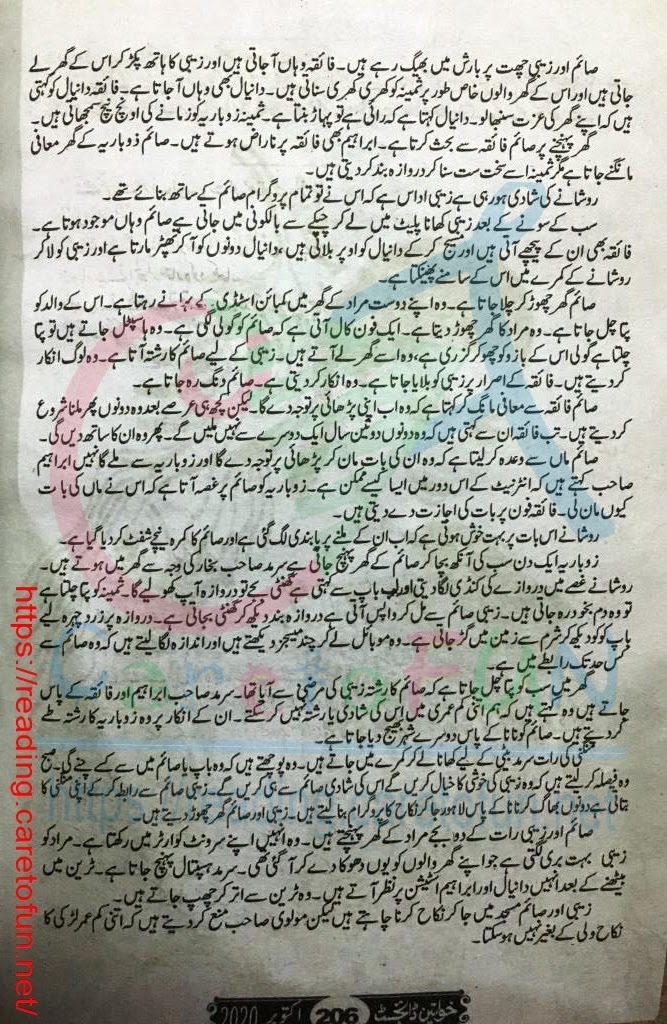 صائم اور زیبی چھت پر بارش میں بھیگ رہے ہیں۔ فائقہ وہاں آ جاتی ہیں اور زیبی کا ہاتھ پکڑ کر اس کے گھر لے
جاتی ہیں اور اس کے گھر والوں خاص طور پر ثمینہ کو کھری کھری سناتی ہیں۔ دانیال بھی وہاں آ جاتا ہے۔ فائقہ دانیال کو کہتی
ہیں کہ اپنے گھر کی عزت سنبھالو۔ دانیال کہتا ہے کہ رائی ہے تو پہاڑ بنتا ہے۔ ثمینہ زوباریہ کو زمانے کی اونچ نیچ سمجھاتی ہیں۔
گھر پہنچنے پر صائم فائقہ سے بحث کرتا ہے۔ ابراہیم بھی فائقہ پر ناراض ہوتے ہیں۔ صائم زوباریہ کے گھر معافی
مانگنے جاتا ہے مگر ثمینہ اسے سخت ست سنا کر دروازہ بند کر دیتی ہیں۔
روشانے کی شادی ہو رہی ہے زیبی اداس ہے کہ اس نے تو تمام پروگرام صائم کے ساتھ بنائے تھے۔
سب کے سونے کے بعد زیبی کھانا پلیٹ میں لے کر چپکے سے بالکونی میں جاتی ہے صائم وہاں موجود ہوتا ہے۔
فائقہ بھی ان کے پیچھے آتی ہیں اور میسج کر کے دانیال کو اوپر بلاتی ہیں، دانیال دونوں کو آ کر تھپڑ مارتا ہے اور زیبی کو لا کر
روشانے کے کمرے میں اس کے سامنے پھینکتا ہے۔
صائم گھر چھوڑ کر چلا جاتا ہے۔ وہ اپنے دوست مراد کے گھر میں کمبائن اسٹڈی کے بہانے رہتا ہے۔ اس کے والد کو
پتا چل جاتا ہے۔ وہ مراد کا گھر چھوڑ دیتا ہے۔ ایک فون کال آتی ہے کہ صائم کو گولی لگی ہے۔ وہ ہاسپٹل جاتے ہیں تو پتا
چلتا ہے گولی اس کے بازو کو چھو کر گزری ہے، وہ اسے گھر لے آتے ہیں۔ زیبی کے لیے صائم کا رشتہ آتا ہے۔ وہ لوگ انکار
کر دیتے ہیں۔ فائقہ کے اصرار پر زیبی کو بلایا جاتا ہے۔ وہ انکار کر دیتی ہے۔ صائم دنگ رہ جاتا ہے۔
صائم فائقہ سے معافی مانگ کر کہتا ہے کہ وہ اب اپنی پڑھائی پر توجہ دے گا۔ لیکن کچھ ہی عرصے بعد وہ دونوں پھر ملنا شروع
کر دیتے ہیں۔ تب فائقہ ان سے کہتی ہیں کہ وہ دونوں دو تین سال ایک دوسرے سے نہیں ملیں گے۔ پھر وہ ان کا ساتھ دیں گی۔
صائم ماں سے وعدہ کر لیتا ہے کہ وہ ان کی بات مان کر پڑھائی پر توجہ دے گا اور زوباریہ سے ملے گا نہیں ابراہیم
صاحب کہتے ہیں کہ انٹرنیٹ کے اس دور میں ایسا کیسے ممکن ہے۔ زوباریہ کو صائم پر غصہ آتا ہے کہ اس نے ماں کی بات
کیوں مان لی۔ فائقہ فون پر بات کی اجازت دے دیتی ہیں۔
روشانے اس بات پر بہت خوش ہوتی ہے کہ اب ان کے ملنے پر پابندی لگ گئی ہے اور صائم کا کمرہ نیچے شفٹ کر دیا گیا ہے۔
زوباریہ ایک دن سب کی آنکھ بچا کر صائم کے گھر پہنچ جاتی ہے سرمد صاحب بخار کی وجہ سے گھر میں ہوتے ہیں۔
روشانے غصے میں دروازے کی کنڈی لگا دیتی اور باپ سے کہتی ہے گھنٹی بجے تو دروازہ آپ کھولیے گا۔ ثمینہ کو پتا چلتا ہے
تو وہ دم بخود رہ جاتی ہیں۔ زیبی صائم سے مل کر واپس آتی ہے دروازہ بند دیکھ کر گھنٹی بجاتی ہے۔ دروازہ پر زرد چہرہ لیے
باپ کو دیکھ کر شرم سے زمین میں گڑ جاتی ہے۔ وہ موبائل لے کر چند میسجز دیکھتے ہیں اور اندازہ لگا لیتے ہیں کہ وہ صائم سے
کس حد تک رابطے میں ہے۔
گھر میں سب کو پتا چل جاتا ہے کہ صائم کا رشتہ زیبی کی مرضی سے آیا تھا۔ سرمد صاحب ابراہیم اور فائقہ کے پاس
جاتے ہیں وہ کہتے ہیں کہ ہم اتنی کم عمری میں اس کی شادی یا رشتہ نہیں کر سکتے۔ ان کے انکار پر وہ زوباریہ کا رشتہ طے
کر دیتے ہیں۔ صائم کو نانا کے پاس دوسرے شہر بھیج دیا جاتا ہے۔
منگنی کی رات سرمد بیٹی کے لیے کھانا لے کر کمرے میں جاتے ہیں۔ وہ پوچھتے ہیں کہ وہ باپ یا صائم میں سے کسے چنے گی۔ صبح
وہ فیصلہ کر لیتے ہیں کہ وہ زیبی کی خوشی کا خیال کریں گے اس کی شادی صائم سے ہی کریں گے۔ زیبی صائم سے رابطہ کر کے اپنی منگنی کا
بتاتی ہے دونوں بھاگ کر نانا کے پاس لاہور جا کر نکاح کا پروگرام بنا لیتے ہیں۔ زیبی اور صائم گھر چھوڑ دیتے ہیں۔
صائم اور زیبی رات کے دو بجے مراد کے گھر پہنچتے ہیں۔ وہ انہیں اپنے سرونٹ کوارٹر میں رکھتا ہے۔ مراد کو
زیبی بہت بری لگتی ہے جو اپنے گھر والوں کو یوں دھوکا دے کر آ گئی تھی۔ سرمد ہسپتال پہنچ جاتا ہے۔ ٹرین میں
بیٹھنے کے بعد انہیں دانیال اور ابراہیم اسٹیشن پر نظر آتے ہیں۔ وہ ٹرین سے اتر کر چھپ جاتے ہیں۔
زیبی اور صائم مسجد میں جا کر نکاح کرنا چاہتے ہیں لیکن مولوی صاحب منع کر دیتے ہیں کہ اتنی کم عمر لڑکی کا
نکاح ولی کے بغیر نہیں ہو سکتا۔
خواتین ڈائجسٹ 206 اکتوبر 2020
https://reading.caretofun.net/